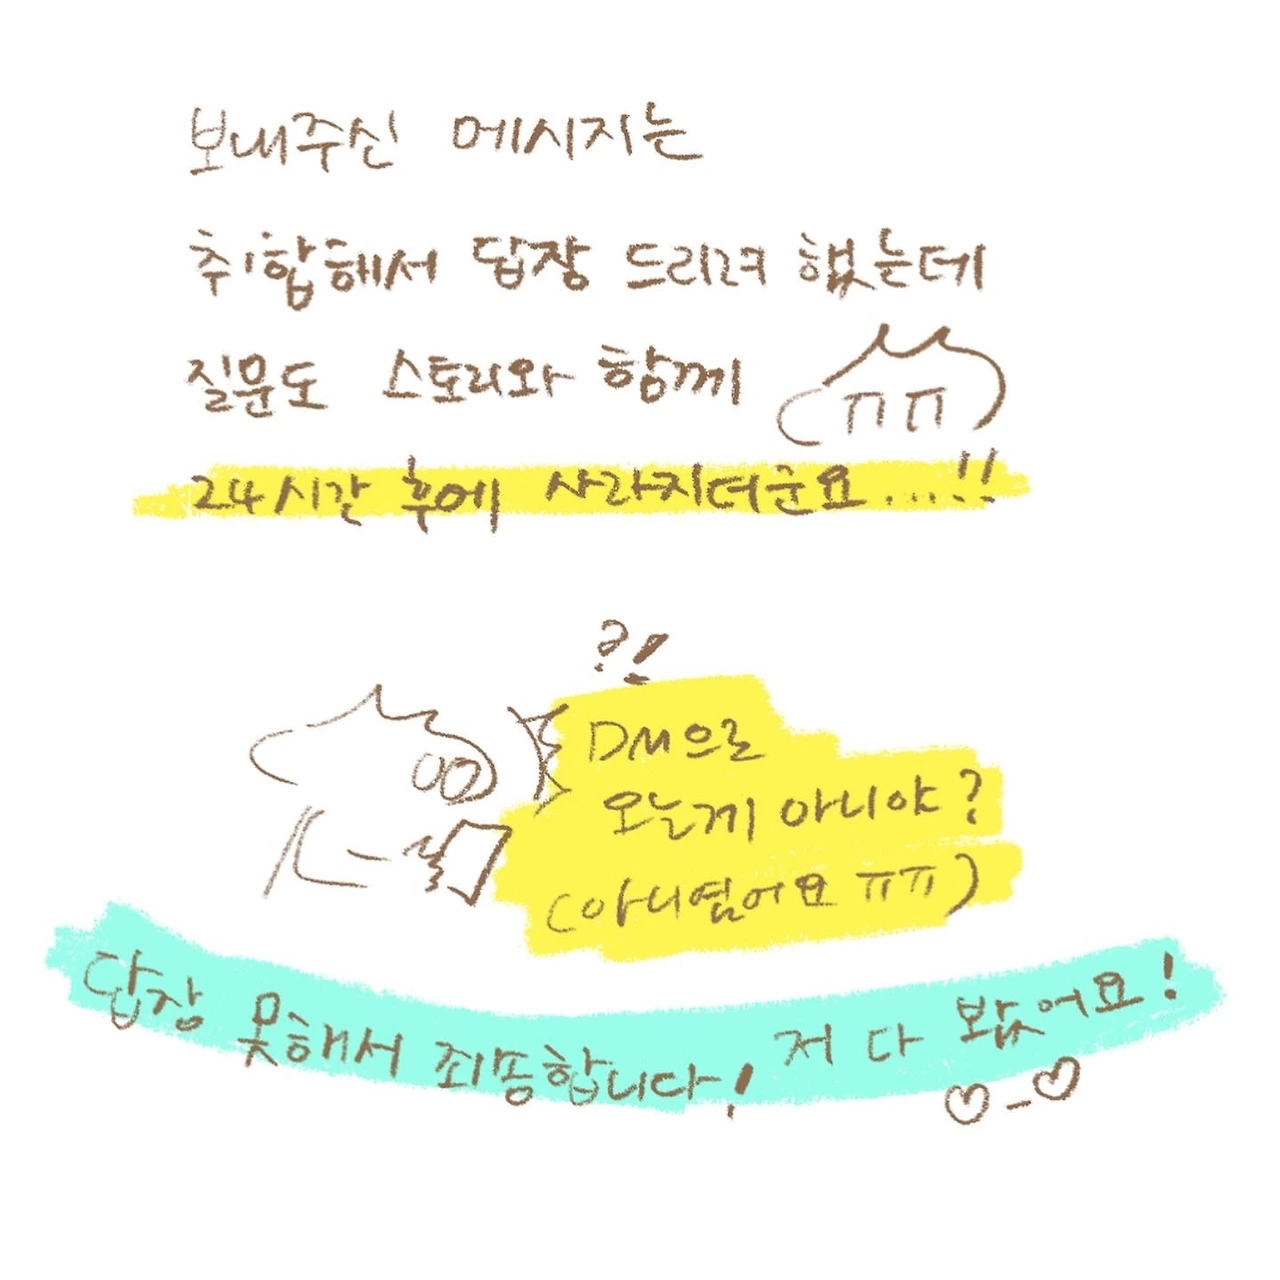 보내주신 메시지는
취합해서 답장 드리려 했는데
질문도 스토리와 함께
ㅠㅠ
24시간 후에 사라지더군요...!!
?!
DM으로
오는게 아니야?
(아니였어요 ㅠㅠ)
답장 못해서 죄송합니다! 저 다 봤어요!
♡_♡